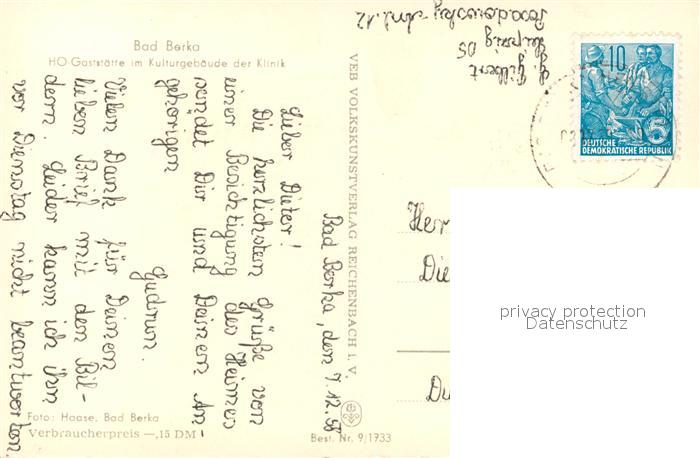 Bad Berka
HO-Gaststätte im Kulturgebäude der Klinik
Bad Berka, den 7.12.58
Lieber Dieter!
Die herzlichsten Grüße von
einer Besichtigung des Heimes
sendet Dir und Deinen An-
gehörigen
Gudrun.
Vielen Dank für Deinen
lieben Brief mit den Bil-
dern. Leider kann ich ihn
vor Dienstag nicht beantworten.
Foto: Haase, Bad Berka
Verbraucherpreis —,15 DM
VEB VOLKSKUNSTVERLAG REICHENBACH i. V.
Best. Nr. 9/1733
G. Gilbert
Leipzig O5
12
10
5
DEUTSCHE
DEMOKRATISCHE REPUBLIK
Her
Die
Du
privacy protection
Datenschutz